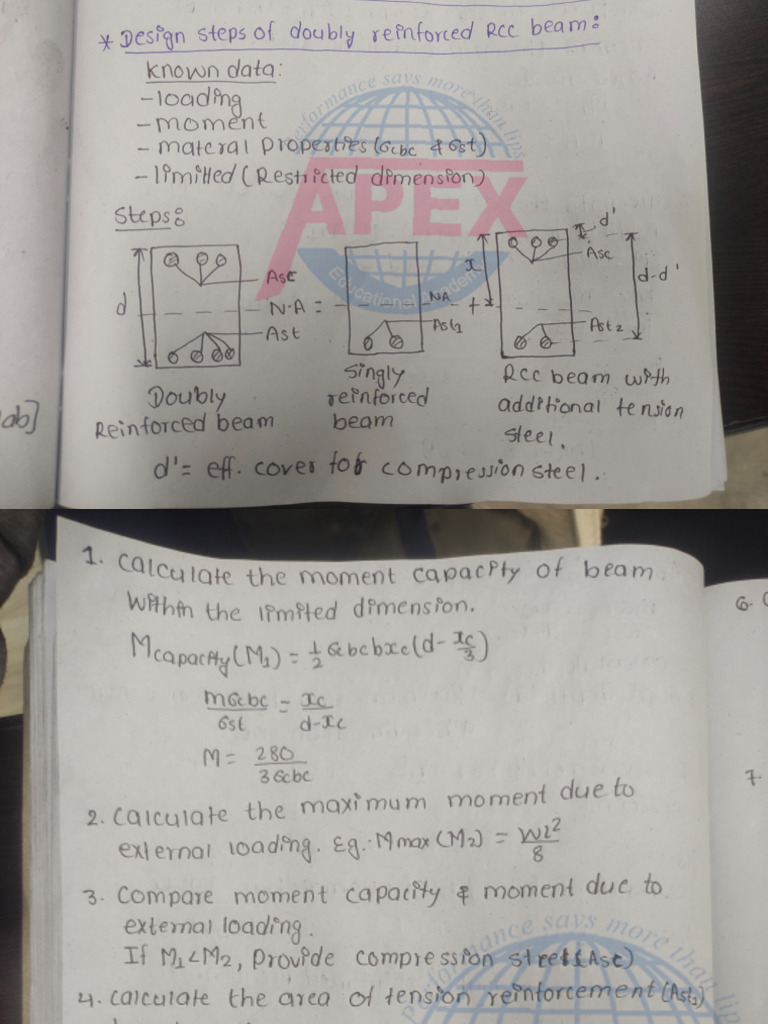 * Design steps of doubly reinforced RCC beam:
Known data:
- loading
- moment
- materal properties (σcbc & σst)
- limitted (Restricted dimension)
Performance says more than lips
APEX
Educational Academy
Steps:
d
Asc
N.A =
Ast
NA +
Ast1
x
d'
Asc
d-d'
Ast2
Doubly
Reinforced beam
Singly
reinforced
beam
RCC beam with
additional tension
steel.
d' = eff. cover for compression steel.
ab]
1. Calculate the moment capacity of beam
within the limited dimension.
Mcapacity (M1) = 1/2 σcbc b xc (d - xc/3)
mσcbc/σst = xc/d-xc
M = 280/3σcbc
2. Calculate the maximum moment due to
external loading. Eg:- Mmax (M2) = wl²/8
3. Compare moment capacity & moment due to
external loading.
If M1 < M2, provide compression steel (Asc)
4. Calculate the area of tension reinforcement (Ast1)
6.
7.